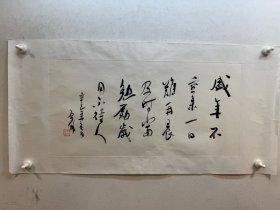 盛年不
重来一日
難再晨
及时當
勉励歲
月不待人